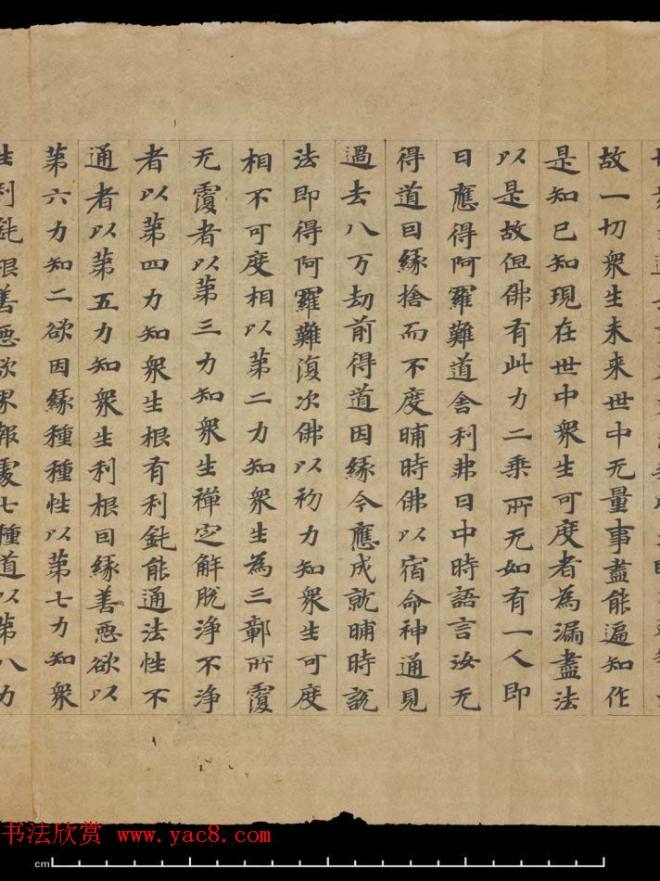 故一切衆生未来世中无量事盡能遍知作
是知已知現在世中衆生可度者為漏盡法
以是故但佛有此力二乘所无如有一人即
日應得阿羅難道舍利弗日中時語言汝无
得道因緣捨而不度晡時佛以宿命神通見
過去八万劫前得道因緣今應成就晡時說
法即得阿羅難復次佛以初力知衆生可度
相不可度相以第二力知衆生為三鄣所覆
无覆者以第三力知衆生禪定解脫淨不淨
者以第四力知衆生根有利鈍能通法性不
通者以第五力知衆生利根因緣善惡欲以
第六力知二欲因緣種種性以第七力知衆
生利鈍根善惡欲界報處七種道以第八力
书法欣赏 www.yac8.com
cm